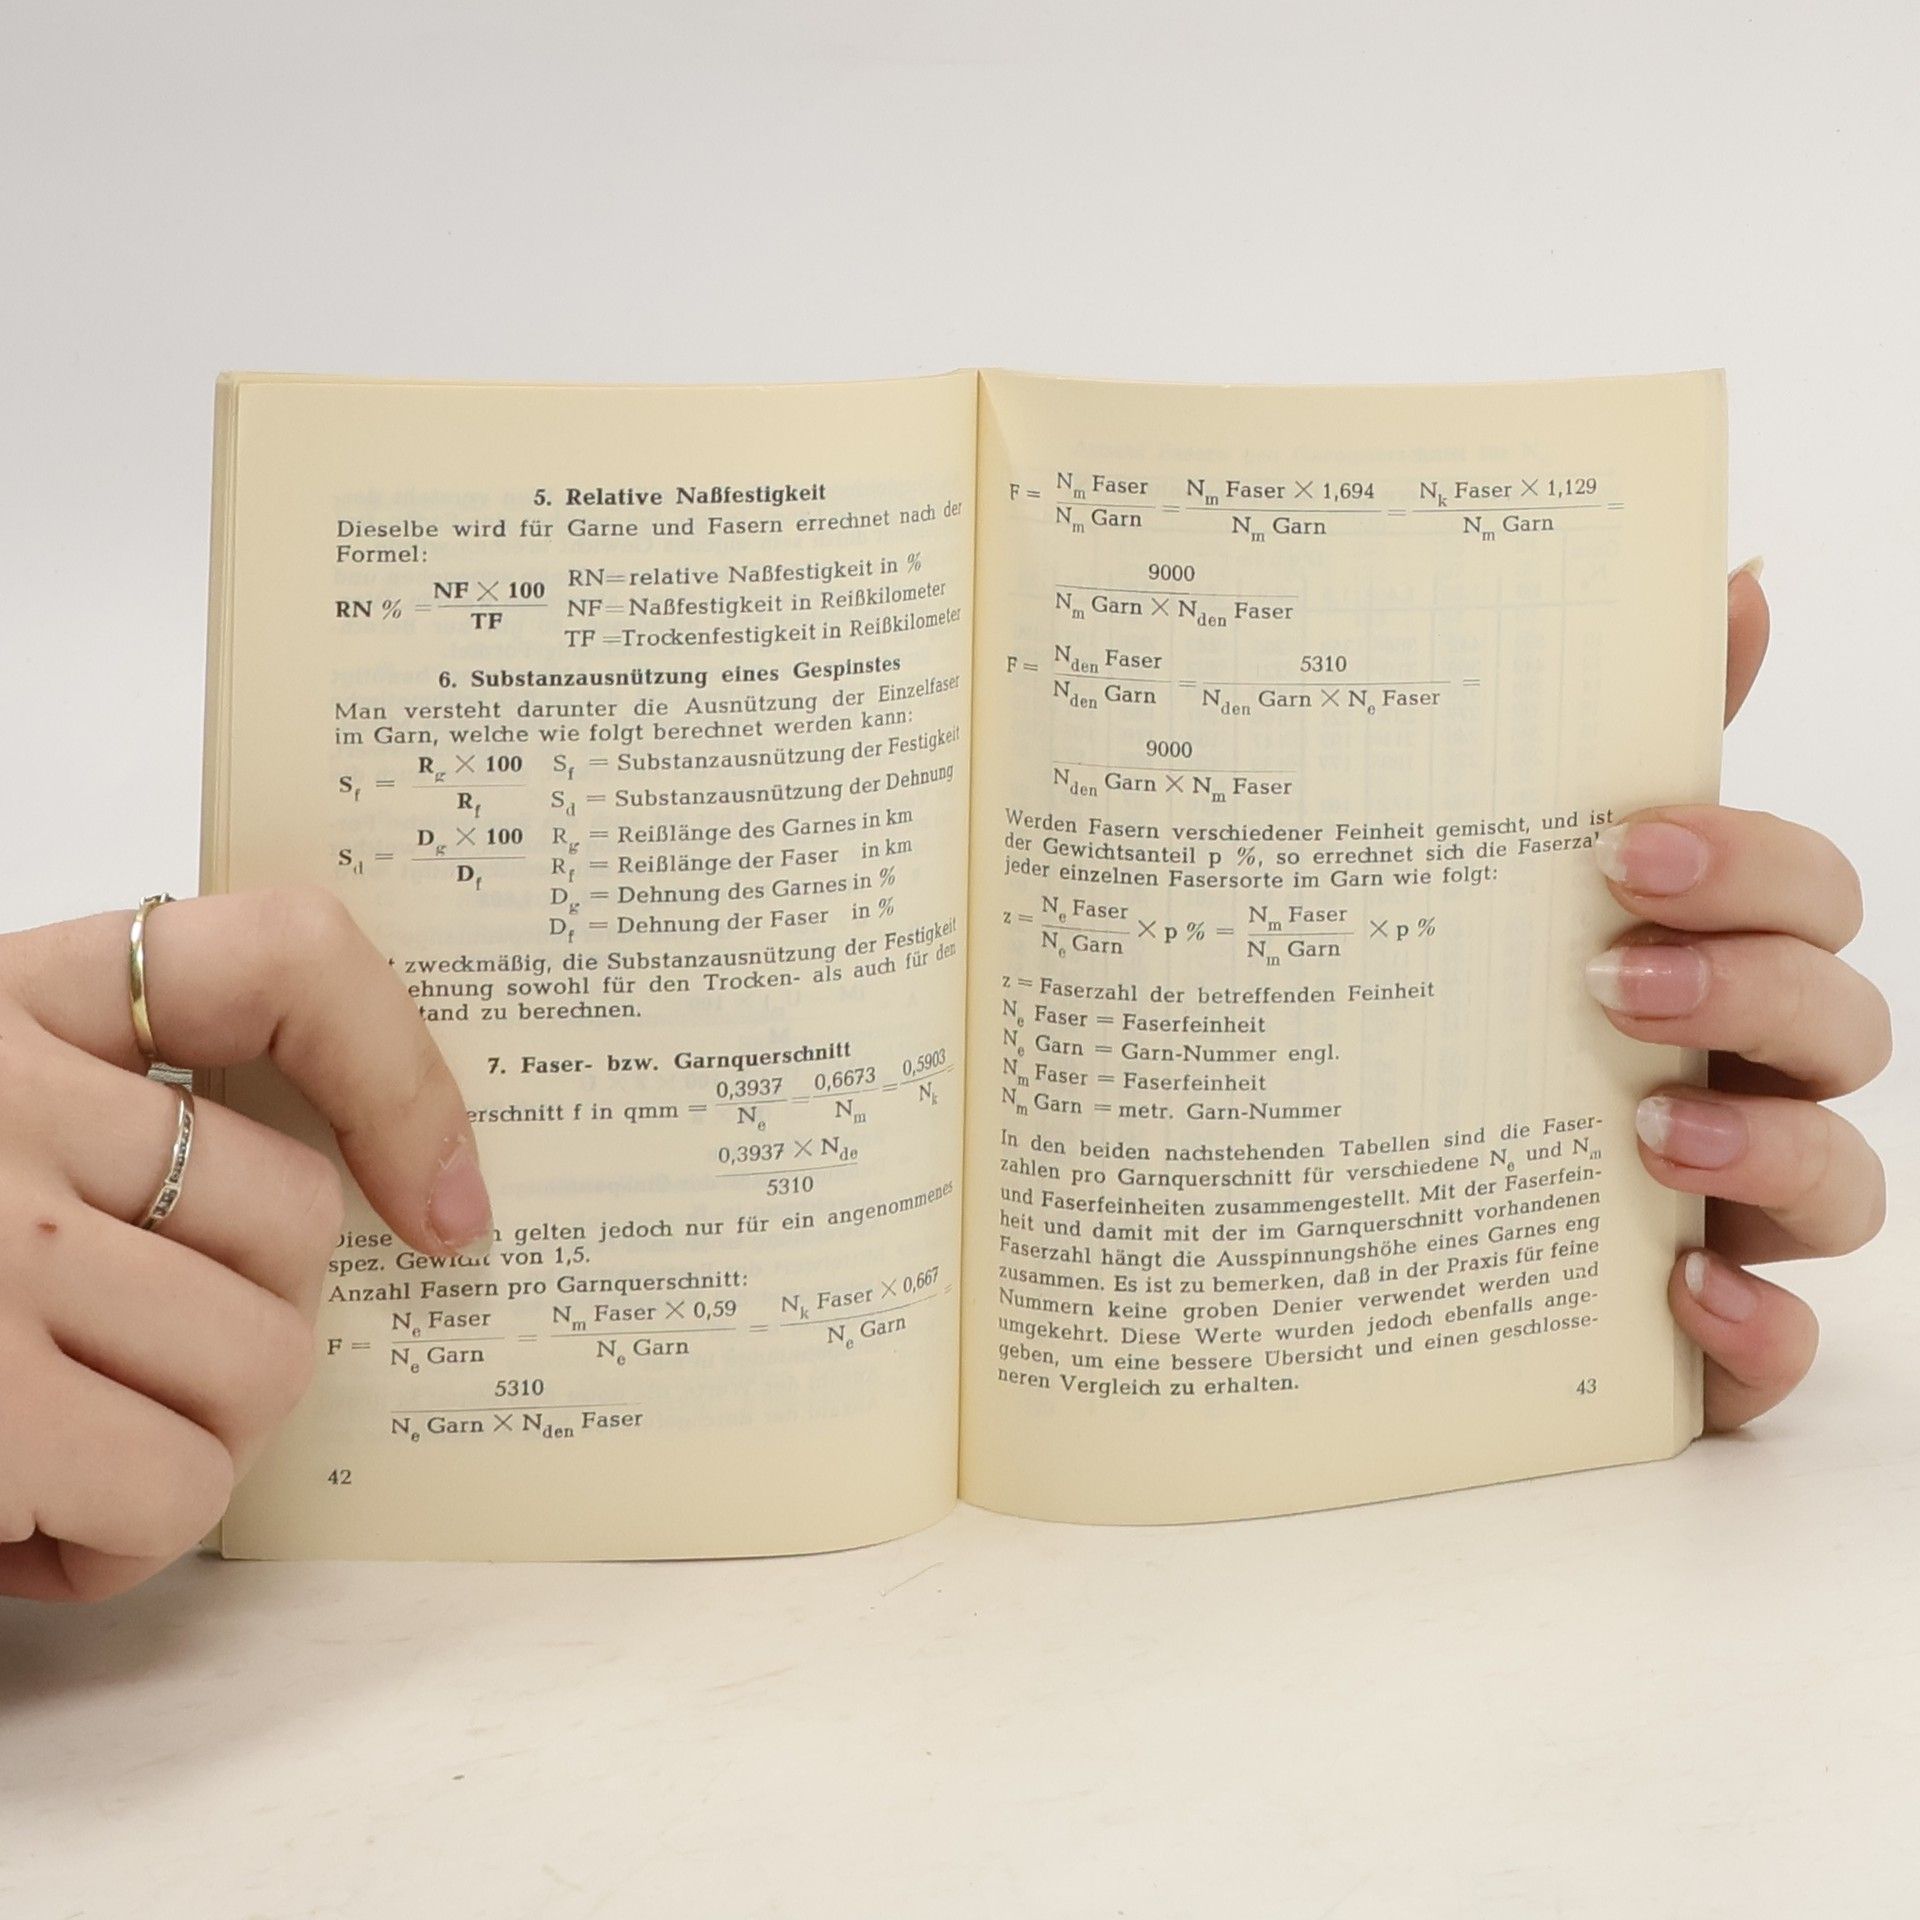 5. Relative Naßfestigkeit
Dieselbe wird für Garne und Fasern errechnet nach der
Formel:
RN % = NF × 100 / TF
RN = relative Naßfestigkeit in %
NF = Naßfestigkeit in Reißkilometer
TF = Trockenfestigkeit in Reißkilometer
6. Substanzausnützung eines Gespinstes
Man versteht darunter die Ausnützung der Einzelfaser
im Garn, welche wie folgt berechnet werden kann:
S_f = R_g × 100 / R_f
S_f = Substanzausnützung der Festigkeit
S_d = Substanzausnützung der Dehnung
S_d = D_g × 100 / D_f
R_g = Reißlänge des Garnes in km
R_f = Reißlänge der Faser in km
D_g = Dehnung des Garnes in %
D_f = Dehnung der Faser in %
zweckmäßig, die Substanzausnützung der Festigkeit
ehnung sowohl für den Trocken- als auch für den
tand zu berechnen.
7. Faser- bzw. Garnquerschnitt
erschnitt f in qmm = 0,3937 / N_e = 0,6673 / N_m = 0,5903 / N_k =
0,3937 × N_de / 5310
Diese gelten jedoch nur für ein angenommenes
spez. Gewicht von 1,5.
Anzahl Fasern pro Garnquerschnitt:
F = N_e Faser / N_e Garn = N_m Faser × 0,59 / N_e Garn = N_k Faser × 0,667 / N_e Garn =
5310 / N_e Garn × N_den Faser
42
F = N_m Faser / N_m Garn = N_m Faser × 1,694 / N_m Garn = N_k Faser × 1,129 / N_m Garn =
9000 / N_m Garn × N_den Faser
F = N_den Faser / N_den Garn = 5310 / N_den Garn × N_e Faser =
9000 / N_den Garn × N_m Faser
Werden Fasern verschiedener Feinheit gemischt, und ist
der Gewichtsanteil p %, so errechnet sich die Faserza
jeder einzelnen Fasersorte im Garn wie folgt:
z = N_e Faser / N_e Garn × p % = N_m Faser / N_m Garn × p %
z = Faserzahl der betreffenden Feinheit
N_e Faser = Faserfeinheit
N_e Garn = Garn-Nummer engl.
N_m Faser = Faserfeinheit
N_m Garn = metr. Garn-Nummer
In den beiden nachstehenden Tabellen sind die Faser-
zahlen pro Garnquerschnitt für verschiedene N_e und N_m
und Faserfeinheiten zusammengestellt. Mit der Faserfein-
heit und damit mit der im Garnquerschnitt vorhandenen
Faserzahl hängt die Ausspinnungshöhe eines Garnes eng
zusammen. Es ist zu bemerken, daß in der Praxis für feine
Nummern keine groben Denier verwendet werden und
umgekehrt. Diese Werte wurden jedoch ebenfalls ange-
geben, um eine bessere Übersicht und einen geschlosse-
neren Vergleich zu erhalten.
43